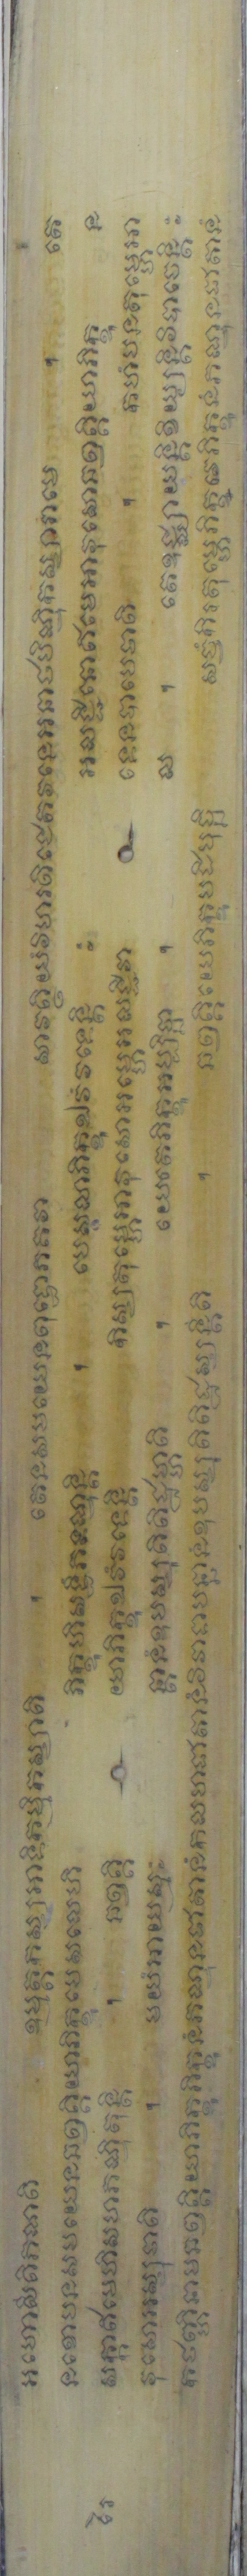 អហោសិតិកណតិ ឧម្មត្តកស្សអាទិកម្មិកស្សាតិ ។ តេនសមយេនពុទ្ធោភគវា សាវត្ថិយំវិហរតិជេតវនេអនាថបិណ្ឌិកស្សារាមេ ។ តេ
នខោបនសមយេនឆព្វគ្គិយាភិក្ខូបេសលេហិ ភិក្ខូហិសទ្ធឹភណ្ឌន្តិ ។ បេសលាភិក្ខូឯវំវទេន្តិ ៈ អលជ្ជិនោឥមេអាវុសោឆព្វគ្គិយាភិក្ខូ ន
រែ សក្កាឥមេហិសហភណ្ឌិតុន្តិ ។ ឆព្វគ្គិ យាភិក្ខូឯវំវទេន្តិ កិស្សតុម្ហេអាវុសោអម្ហេអលជ្ជិវា ទេនបាបេថាតិ ។ កហំបនតុម្ហេអា
វុសោអស្សុថាតិ ។ មយំអាយស្មៈ ន្តានំឧបស្សុតិតិដ្ឋម្ហាតិ ។ យេតេភិក្ខូអប្បិច្ឆា ។ ល ។ តេឧជ្ឈាយន្តិខិយ្យន្តិវិបាចេន្តិ ៈ
កថញ្ហិនាមឆព្វគ្គិយាភិក្ខូភិក្ខូនំភណ្ឌនជាតានំកលហជាតានំវិវាទាបន្នានំឧបស្សុតិតិដ្ឋស្សន្តីតិ ។ ឆព្វគ្គិយេភិក្ខូបដិបុច្ឆិ សច្ចំកិរតុម្ហេភិក្ខវេភិក្ខូនំភណ្ឌនជាតានំ